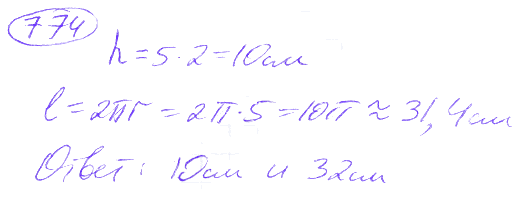 774
h = 5 · 2 = 10 см
l = 2πr = 2π · 5 = 10π ≈ 31,4 см
Ответ: 10 см и 32 см